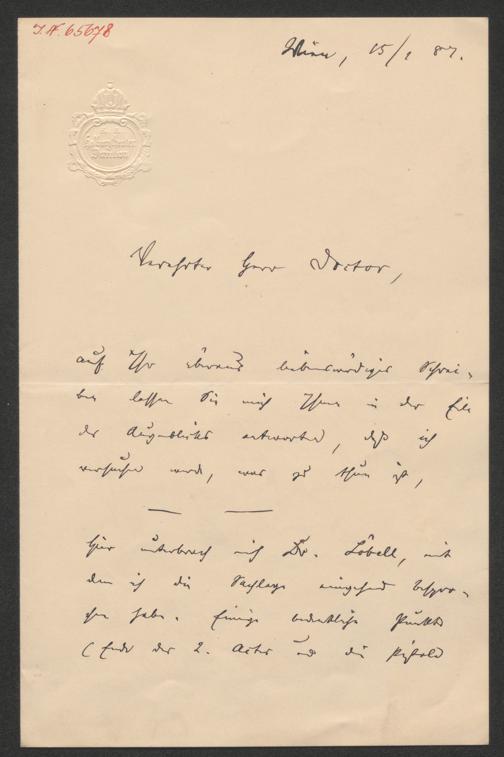 I.N. 65678
Wien, 15/1 87.
Verehrter Herr Doctor,
auf Ihr überaus liebenswürdiges Schrei-
ben lassen Sie mich Ihnen in der Eile
des Augenblicks antworten, daß ich
versuchen werde, was zu thun ist,
Hier unterbrach mich Dr. Löbell, mit
dem ich die Sachlage eingehend bespro-
chen habe. Einige bedenkliche Punkte
(Ende des 2. Actes und die